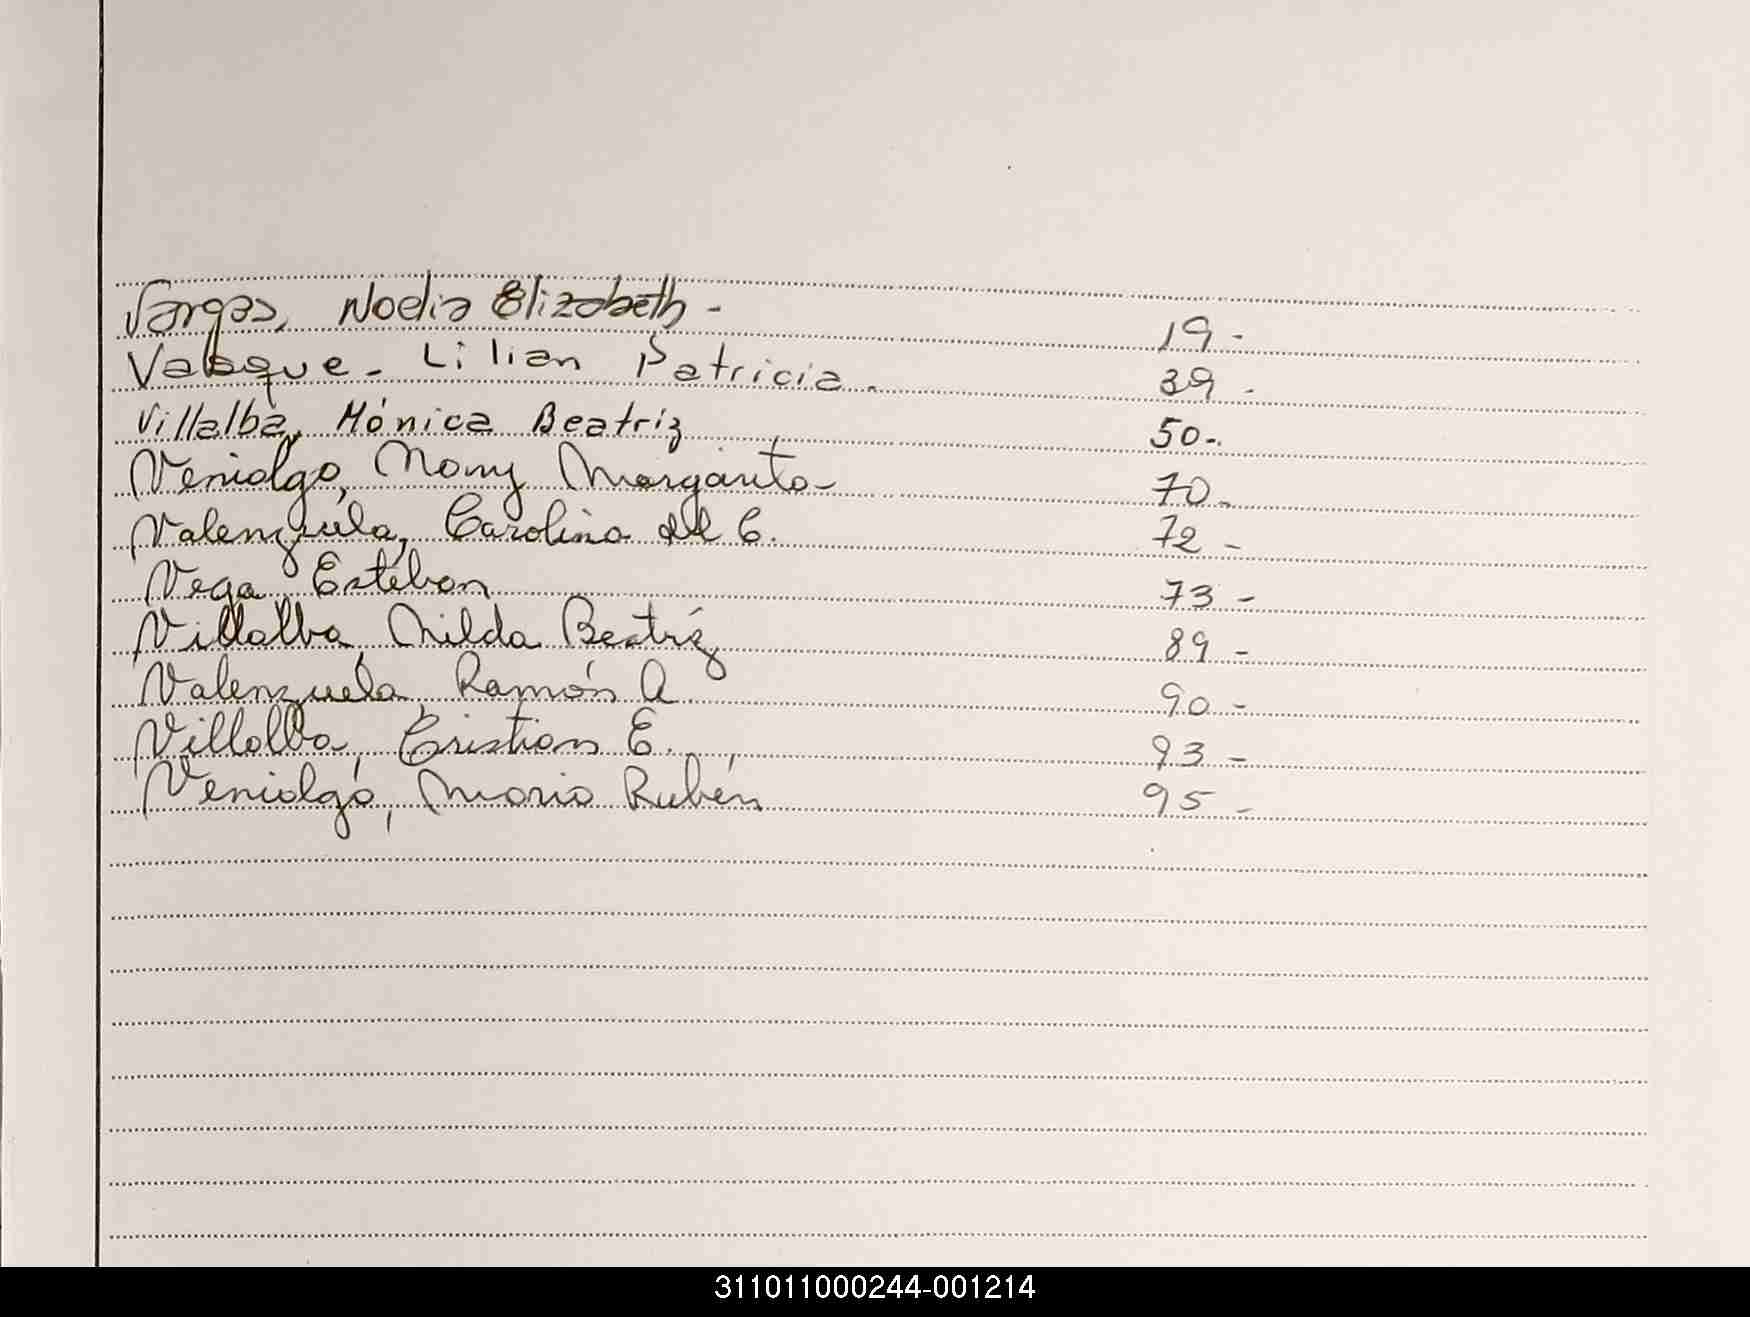 Vargas, Noelia Elizabeth - 19 -
Valsque - Lilian Patricia. 39 -
Villalba, Mónica Beatriz 50-.
Venialgo, Nany Margarita - 70 -
Valenzuela, Carolina del C. 72 -
Vega, Esteban 73 -
Villalba, Nilda Beatríz 89 -
Valenzuela, Ramón A 90 -
Villalba, Cristian E. 93 -
Venialgo, Mario Rubén 95 -
311011000244-001214